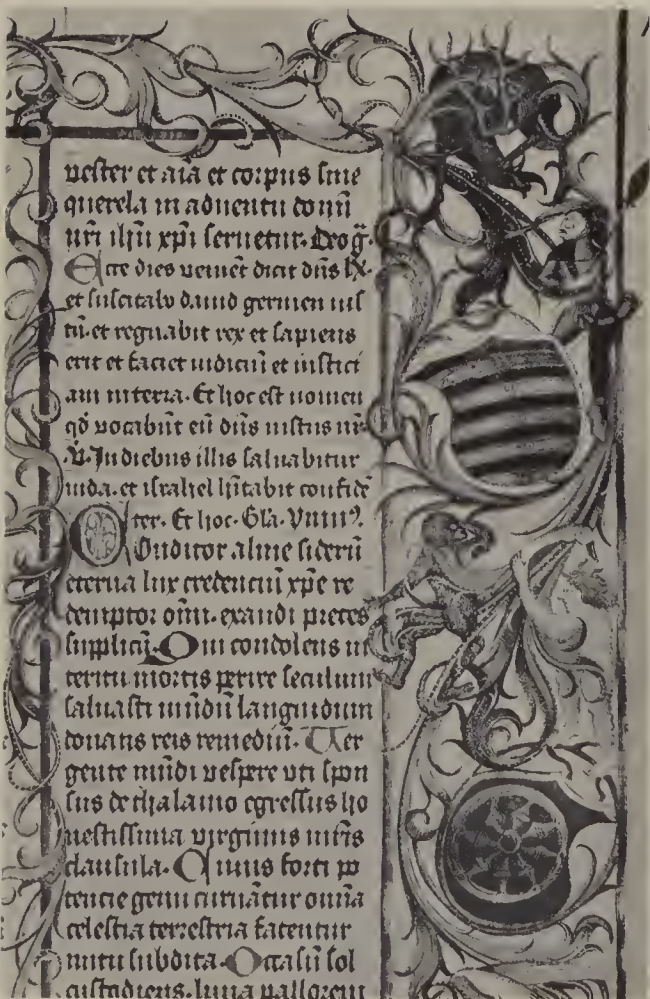 vester et aīa et corpus sine
querela in adventu domī
nrī ihū xpī servetur. Deo gr̄.
Ecce dies veniēt dicit dn̄s lx.
et suscitabo david germen ius
tū. et regnabit rex et sapiens
erit et faciet iudiciū et iustici
am in terra. Et hoc est nomen
qd̄ vocabūt eū dn̄s iustus nr̄.
V. In diebus illis salvabitur
iuda. et israhel hītabit confidē
ter. Et hoc. Gl̄a. Ymn⁹.
Conditor alme siderū
eterna lux credenciū xp̄e re
demptor omī. exaudi preces
supplicū. Qui condolens in
teritu mortis perire seculum
salvasti mūdū languidum
donans reis remediū. Ver
gente mūdi vespere uti spon
sus de thalamo egressus ho
nestissima virginis mr̄is
clausula. Cuius forti po
tencie genu curvātur omīa
celestia terrestria fatentur
nutu subdita. Occasū sol
custodiens. luna pallorem